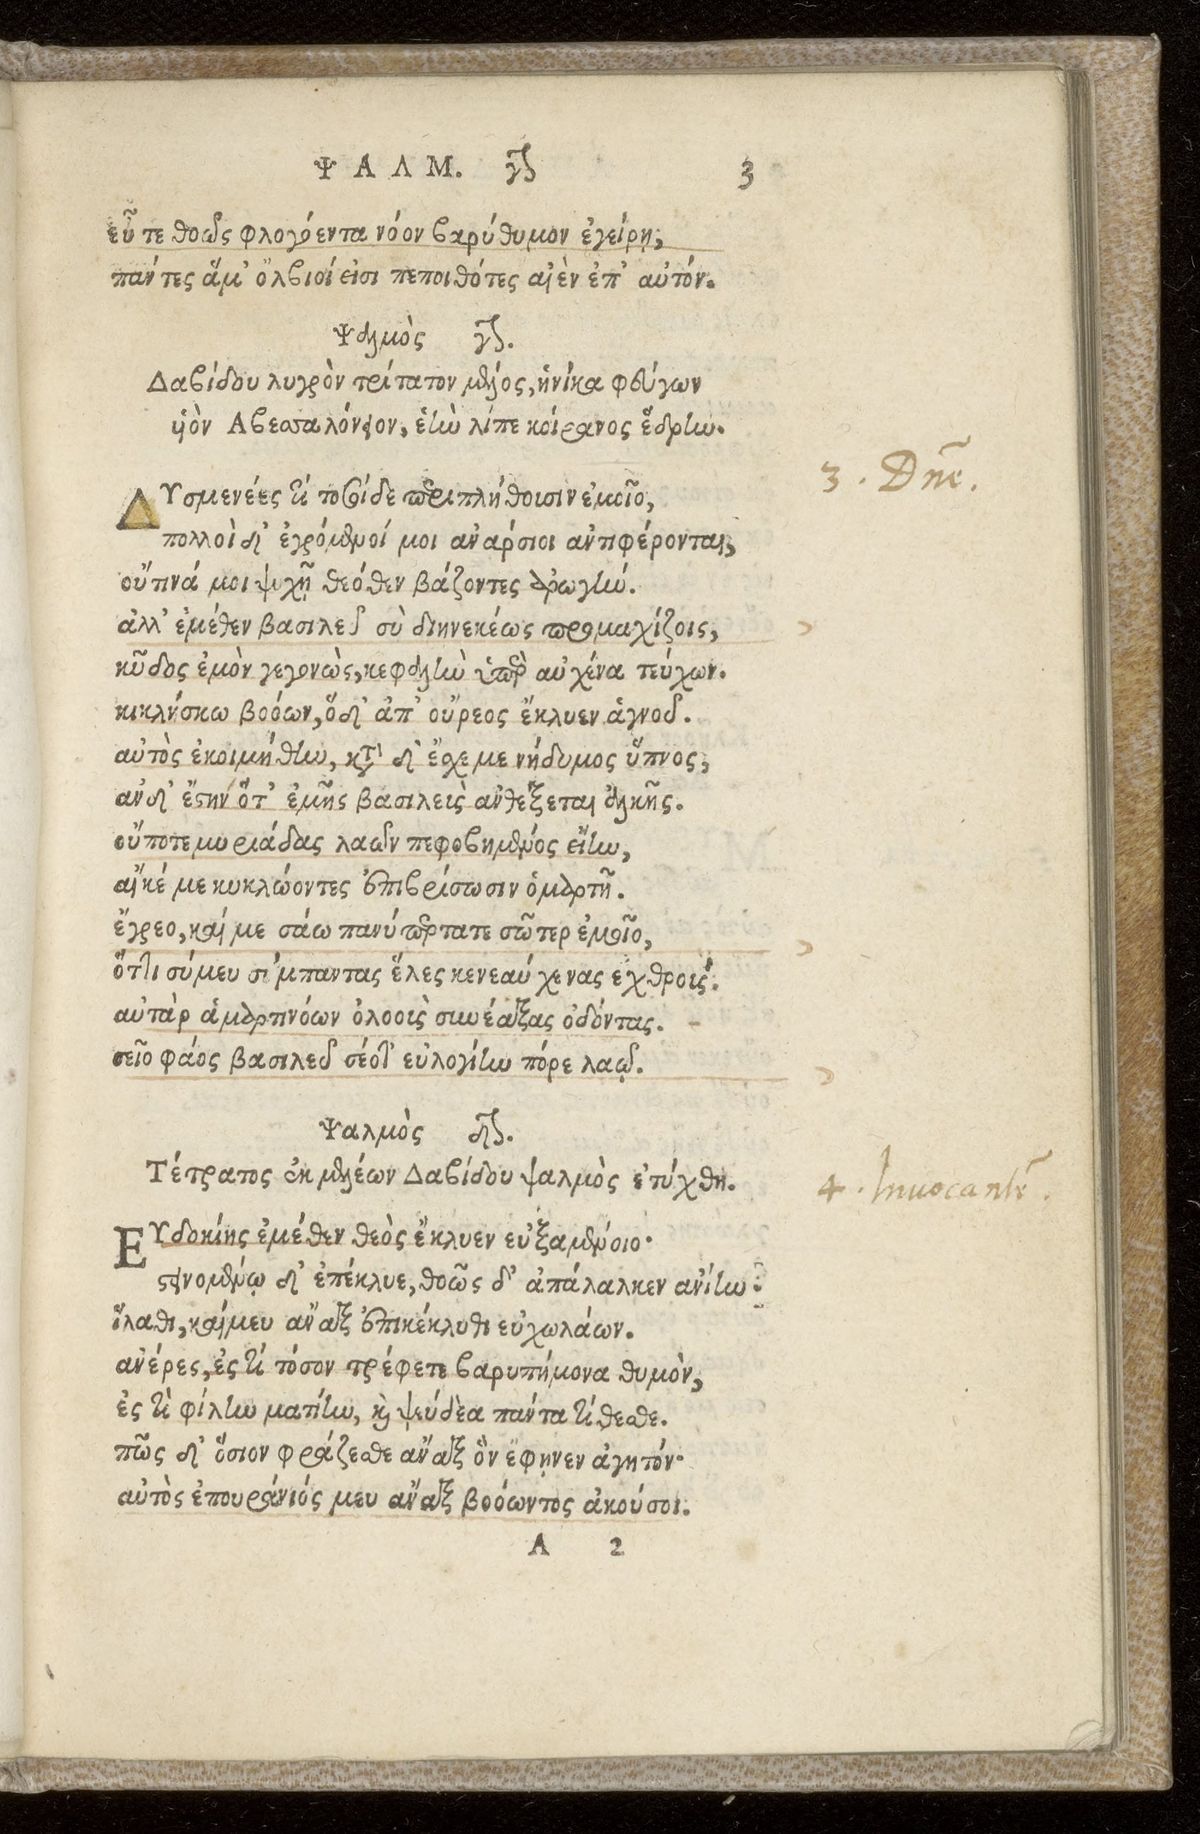 ΨΑΛΜ. γʹ 3
εὖτε θοῶς φλογόεντα νόον βαρύθυμον ἐγείρῃ,
πάντες ἅμ' ὄλβιοί εἰσι πεποιθότες αἰὲν ἐπ' αὐτόν.
Ψαλμὸς γʹ.
Δαβίδου λυγρὸν τρίτατον μέλος, ἡνίκα φεύγων
υἱὸν Αβεσσαλόνιον, ἑὴν λίπε κοίρανος ἕδρην.
3. Dñe.
ΔΥσμενέες τί τοσοίδε περιπλήθουσιν ἐμοῖο,
πολλοὶ δ' ἐγρόμενοί μοι ἀνάρσιοι ἀντιφέρονται,
οὔτινά μοι ψυχῇ θεόθεν βάζοντες ἀρωγήν.
ἀλλ' ἐμέθεν βασιλεῦ σὺ διηνεκέως προμαχίζοις,
κῦδος ἐμὸν γεγονὼς, κεφαλὴν ὑπὲρ αὐχένα τεύχων.
κικλήσκω βοόων, ὅδ' ἀπ' οὔρεος ἔκλυεν ἁγνοῦ.
αὐτὸς ἐκοιμήθην, κατὰ δ' ἔσχε με νήδυμος ὕπνος,
ἂν δ' ἔστην ὅτ' ἐμῆς βασιλεὺς ἀνθέξεται ἀλκῆς.
οὔποτε μυριάδας λαῶν πεφοβημένος εἴην,
αἴκέ με κυκλώοντες ἐπιβρίσωσιν ὁμαρτῇ.
ἔγρεο, καί με σάω πανυπέρτατε σῶτερ ἐμοῖο,
ὅττι σύ μευ σύμπαντας ἕλες κενεαύχενας ἐχθρούς.
αὐτὰρ ἁμαρτινόων ὀλοοὺς συνέαξας ὀδόντας.
σεῖο φάος βασιλεῦ σέο δ' εὐλογίην πόρε λαῷ.
Ψαλμὸς δʹ.
Τέτρατος ἐκ μελέων Δαβίδου ψαλμὸς ἐτύχθη.
4. Inuocantẽ.
ΕΥδοκίης ἐμέθεν θεὸς ἔκλυεν εὐξαμένοιο·
στεινομένῳ δ' ἐπέκλυε, θοῶς δ' ἀπάλαλκεν ἀνίην·
ἵλαθι, καί μευ ἄναξ ἐπικέκλυθι εὐχωλάων.
ἀνέρες, ἐς τί τόσον τρέφετε βαρυπήμονα θυμὸν,
ἐς τὶ φίλην ματίην, καὶ ψεύδεα πάντα τίθεσθε.
πῶς δ' ὅσιον φράζεσθε ἄναξ ὃν ἔφηνεν ἀγητόν·
αὐτὸς ἐπουράνιός μευ ἄναξ βοόωντος ἀκούσοι.
Α 2